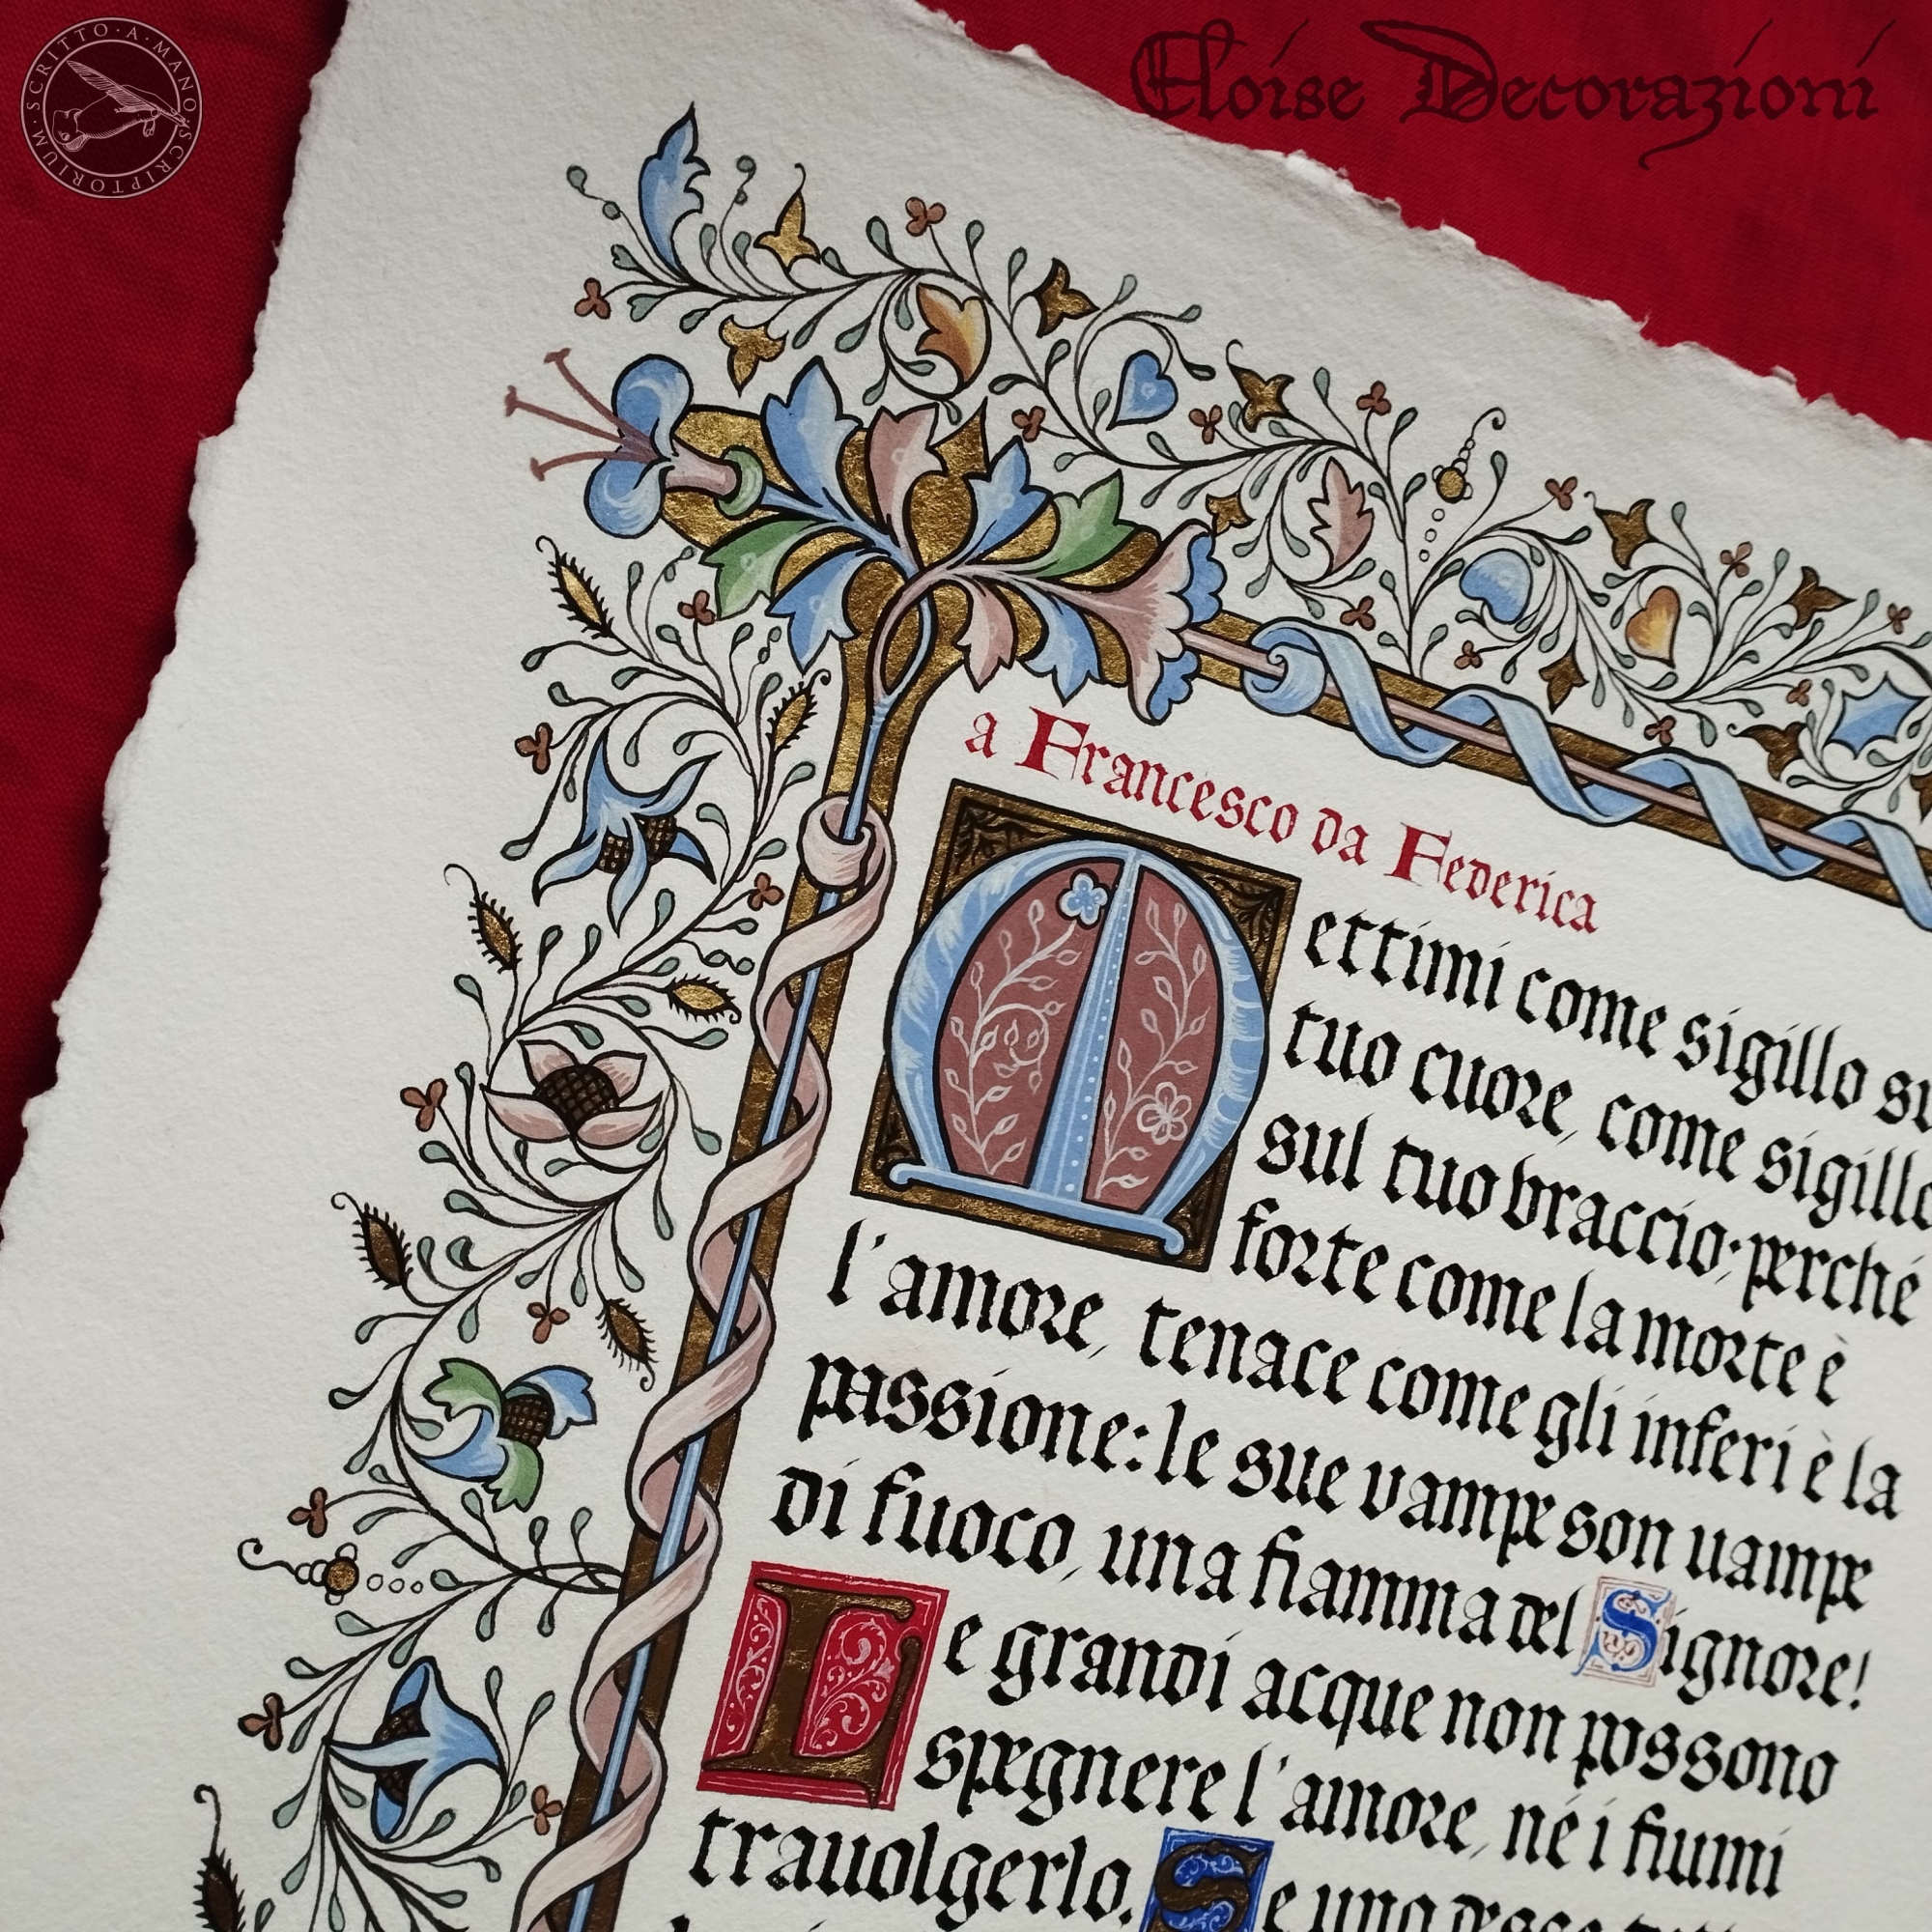 SCRITTO·A·MANO·SCRIPTORIUM·
Eloise Decorazioni
a Francesco da Federica
Mettimi come sigillo
tuo cuore, come sigillo
sul tuo braccio; perché
forte come la morte è
l'amore, tenace come gli inferi è la
passione: le sue vampe son uampe
di fuoco, una fiamma del Signore!
Le grandi acque non possono
spegnere l'amore, né i fiumi
trauolgerlo. Se uno desse